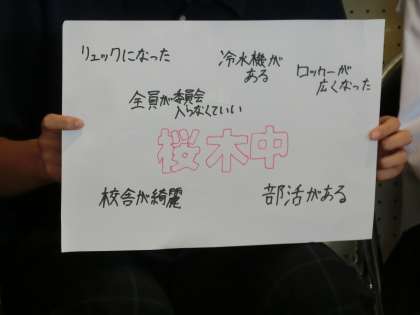 リュックになった
冷水機が
ある
ロッカーが
広くなった
全員が委員会
入らなくていい
桜木中
校舎が綺麗
部活がある